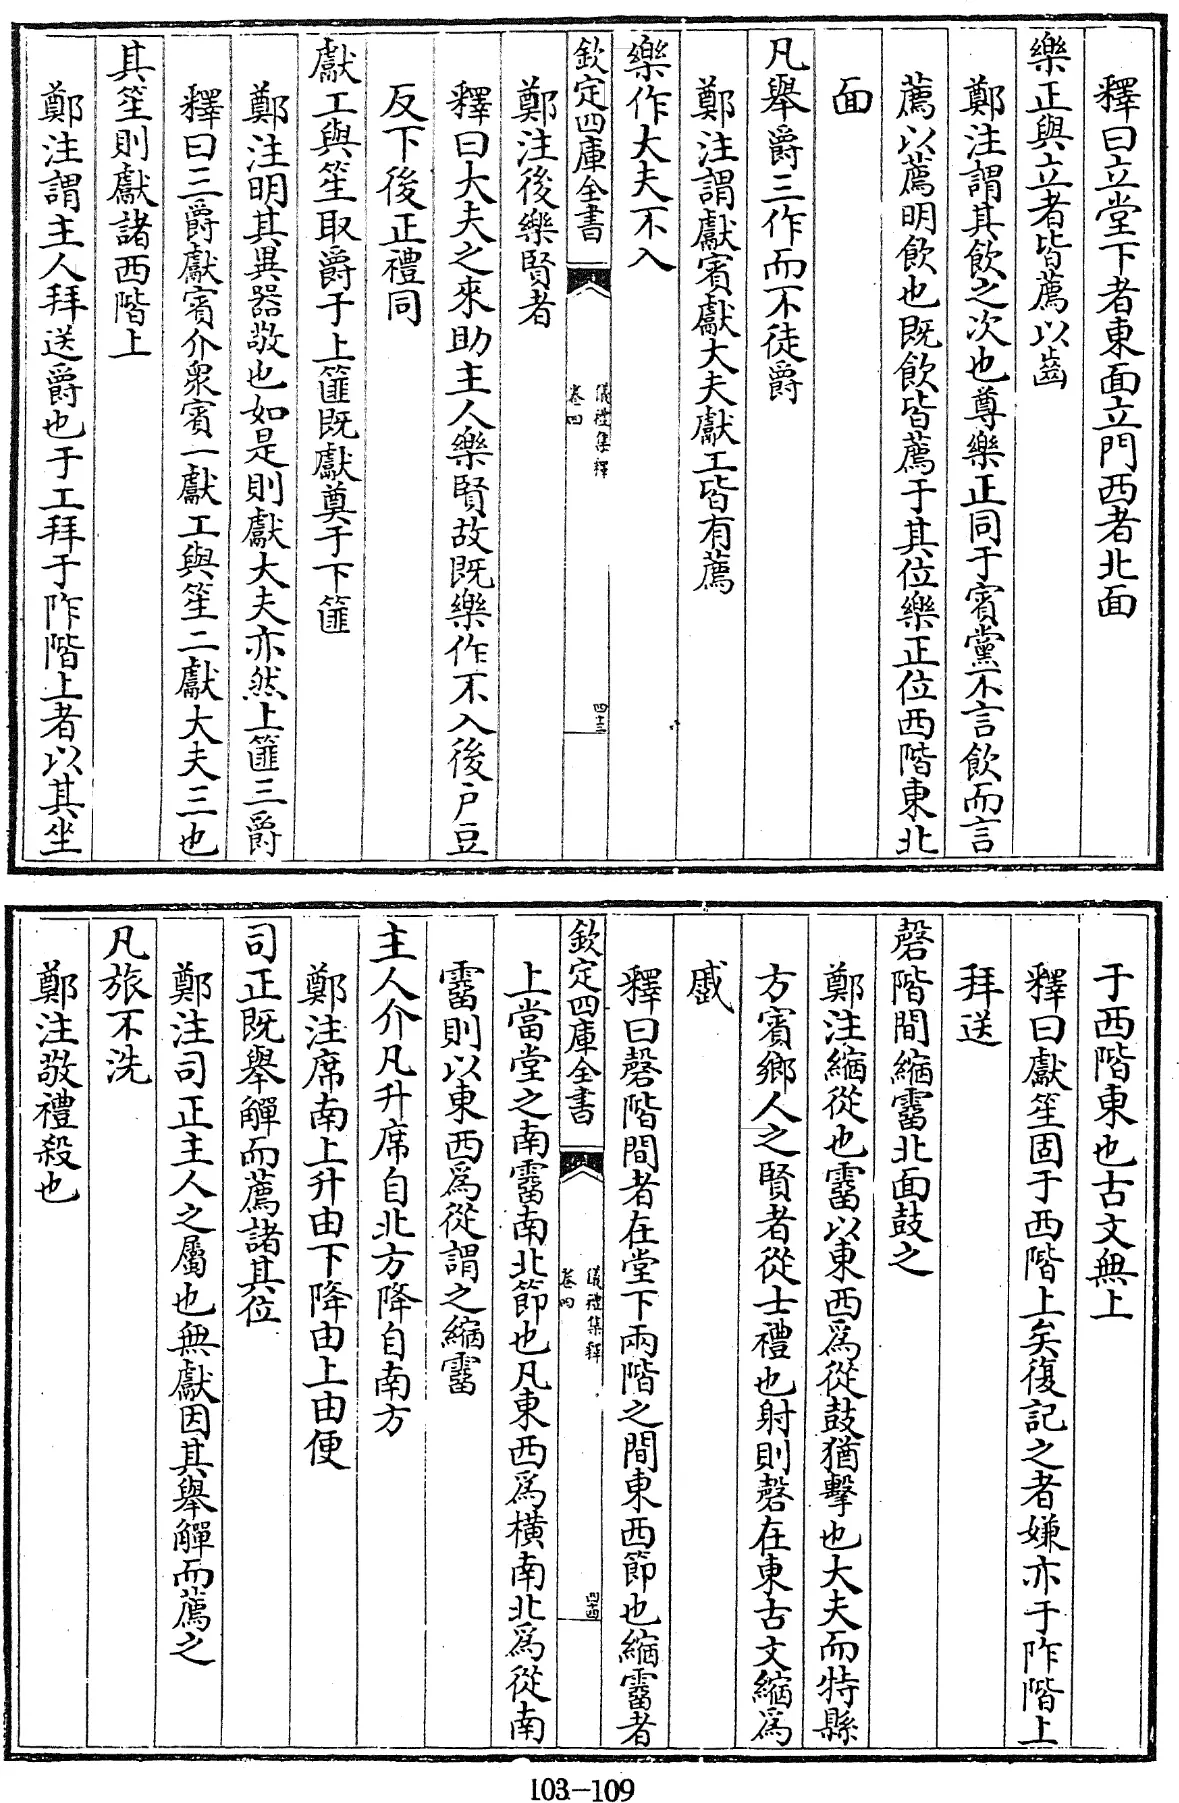 釋曰立堂下者東面立門西者北面
樂正與立者皆薦以齒
鄭注謂其飲之次也尊樂正同于賓黨不言飲而言
薦以薦明飲也既飲皆薦于其位樂正位西階東北
面
凡舉爵三作而不徒爵
鄭注謂獻賓獻大夫獻工皆有薦
樂作大夫不入
欽定四庫全書
儀禮集釋
卷四
四十三
鄭注後樂賢者
釋曰大夫之來助主人樂賢故既樂作不入後戶豆
反下後正禮同
獻工與笙取爵于上篚既獻奠于下篚
鄭注明其異器敬也如是則獻大夫亦然上篚三爵
釋曰三爵獻賓介衆賓一獻工與笙二獻大夫三也
其笙則獻諸西階上
鄭注謂主人拜送爵也于工拜于阼階上者以其坐
于西階東也古文無上
釋曰獻笙固于西階上矣復記之者嫌亦于阼階上
拜送
磬階間縮霤北面鼓之
鄭注縮從也霤以東西爲從鼓猶擊也大夫而特縣
方賓鄉人之賢者從士禮也射則磬在東古文縮爲
蹙
釋曰磬階間者在堂下兩階之間東西節也縮霤者
欽定四庫全書
儀禮集釋
卷四
四十四
上當堂之南霤南北節也凡東西爲橫南北爲從南
霤則以東西爲從謂之縮霤
主人介凡升席自北方降自南方
鄭注席南上升由下降由上由便
司正既舉觶而薦諸其位
鄭注司正主人之屬也無獻因其舉觶而薦之
凡旅不洗
鄭注敬禮殺也
103-109